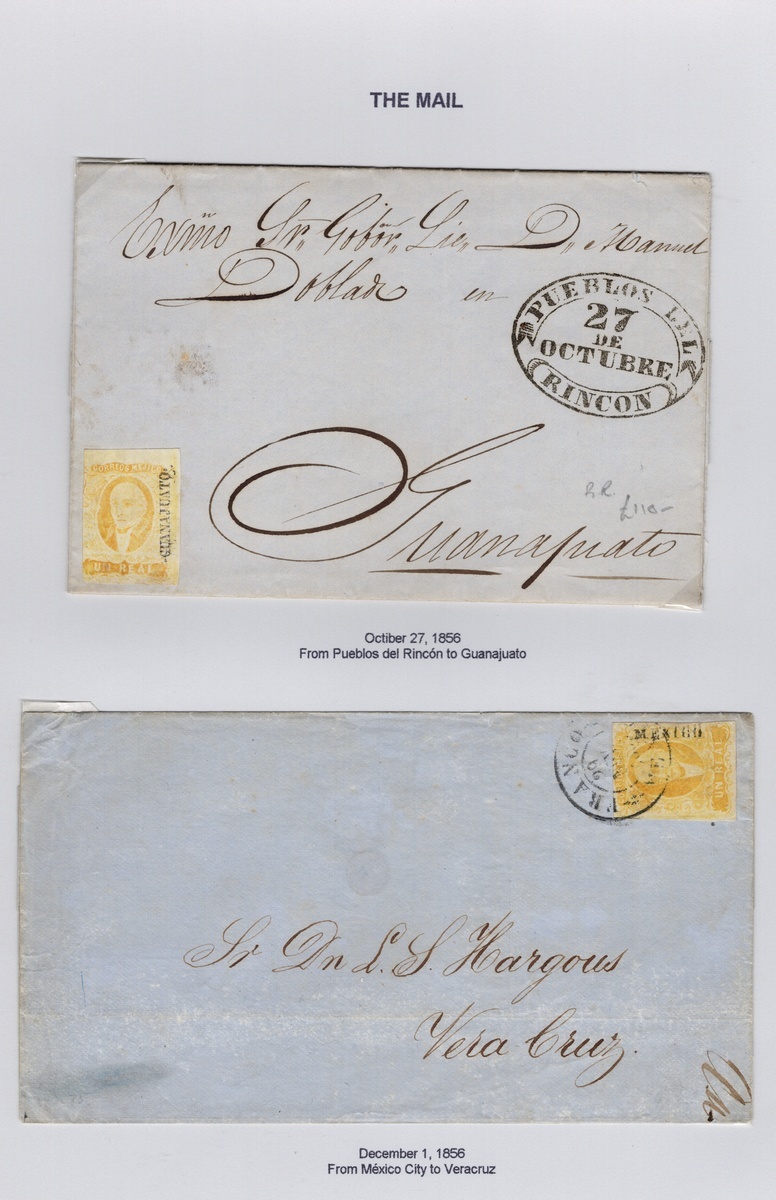 THE MAIL
Exmo Sr. Gobor. Lic. D. Manuel
Doblado en
PUEBLOS DEL
27
DE
OCTUBRE
RINCON
CORREOS MEJICO
UN REAL
GUANAJUATO
R.R.
£110-
Guanajuato
Octiber 27, 1856
From Pueblos del Rincón to Guanajuato
MEXICO
UN REAL
FRANCO
Sr Dn L. S. Hargous
Vera Cruz.
December 1, 1856
From México City to Veracruz